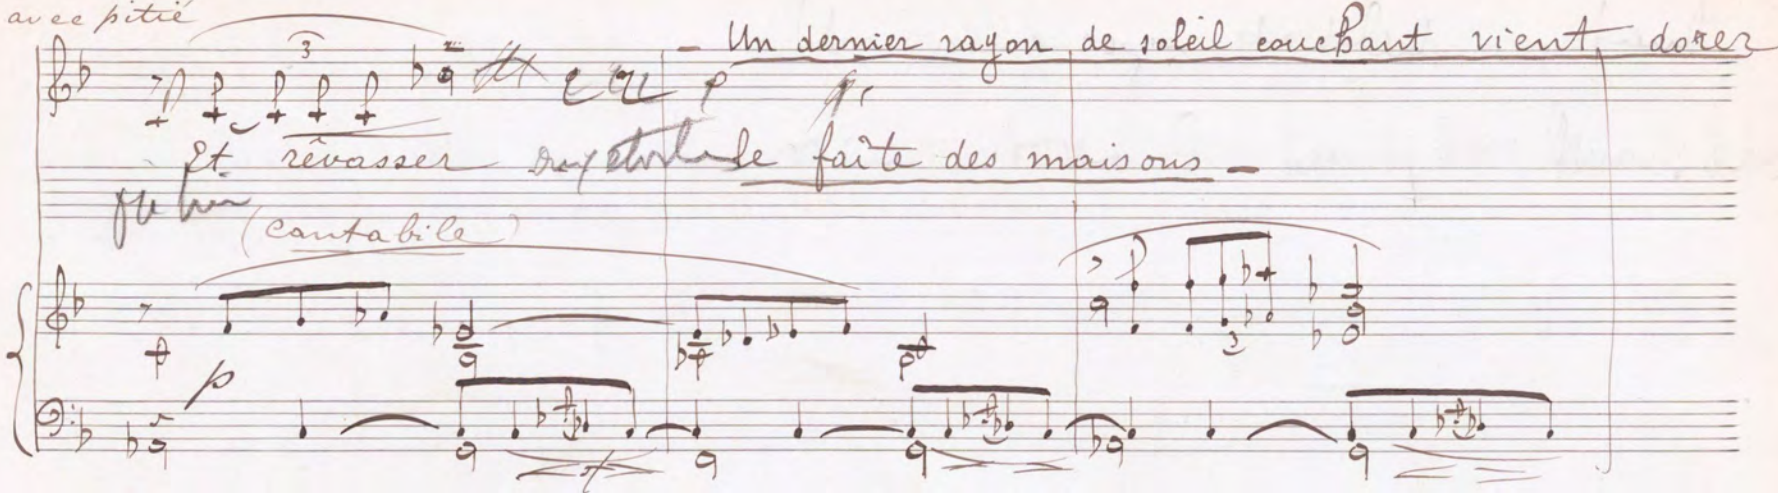 avec pitié
3
- Un dernier rayon de soleil couchant vient dorer
Et rêvasser
le faîte des maisons -
(cantabile)
3
p